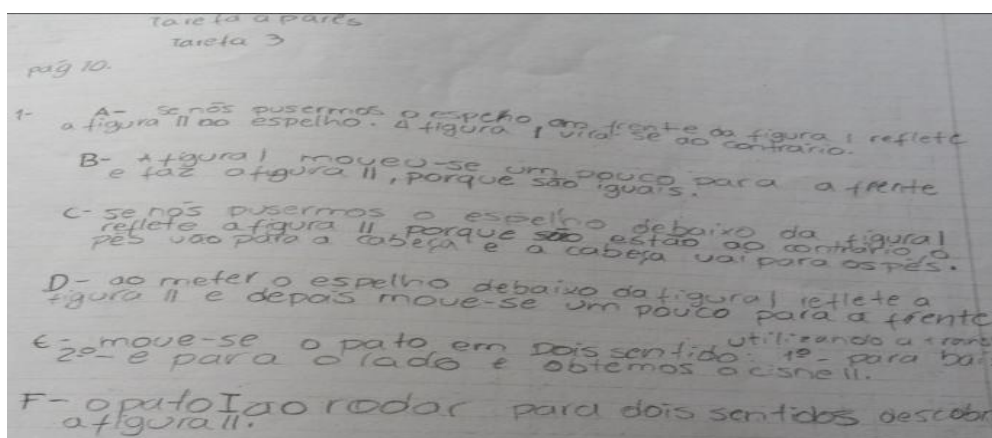 Tarefa a pares
Tarefa 3
pág 10.
1- A- se nós pusermos o espelho em frente da figura 1 reflete
a figura 11 ao espelho. A figura 1 vira-se ao contrário.
B- A figura 1 moveu-se um pouco para a frente
e faz a figura 11, porque são iguais.
C- se nós pusermos o espelho debaixo da figura 1
reflete a figura 11 porque estão ao contrário o
pés vão para a cabeça e a cabeça vai para os pés.
D- ao meter o espelho debaixo da figura 1 reflete a
figura 11 e depois move-se um pouco para a frente
E- move-se o pato em dois sentido: 1º- para bai
utilizando a
2º- e para o lado e obtemos o cisne 11.
F- o pato I ao rodar para dois sentidos descobr
a figura 11.